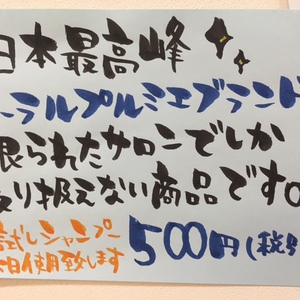 日本最高峰
ーラルプルミエブランド
限られたサロンでしか
取り扱えない商品です。
試しシャンプー 500円(税別
日使用致します